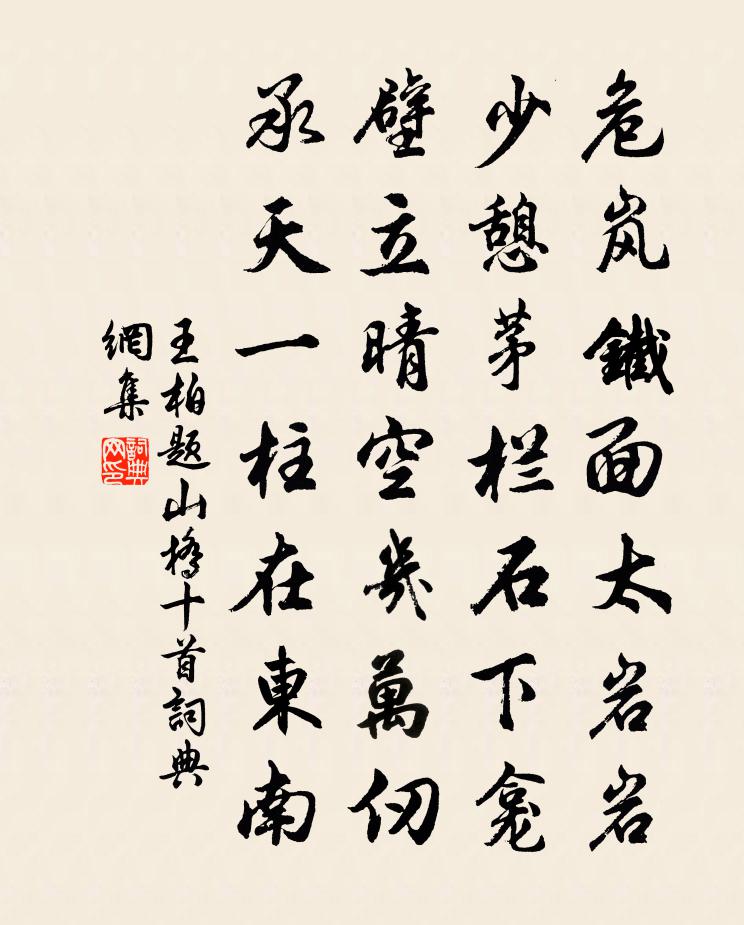 危岚鐵面太岩岩
少憩茅栏石下龛
壁立晴空幾萬仞
承天一柱在東南
王柏题山橋十首詞典
網集
詞典網印